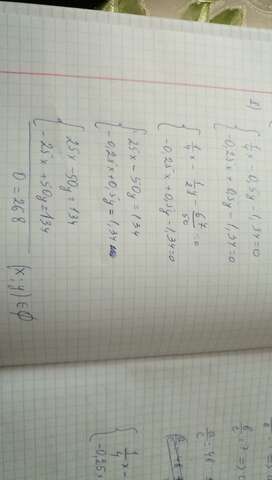 2)
{ 1/4 x - 0,5y - 1,34 = 0
{ -0,25x + 0,5y - 1,34 = 0
{ 1/4 x - 1/2 y - 67/50 = 0
{ -0,25x + 0,5y - 1,34 = 0
{ 25x - 50y = 134
{ -0,25x + 0,5y = 1,34
{ 25x - 50y = 134
{ -25x + 50y = 134
0 = 268 (x; y) ∈ ∅
{ 1/4 x -
{ -0,25x